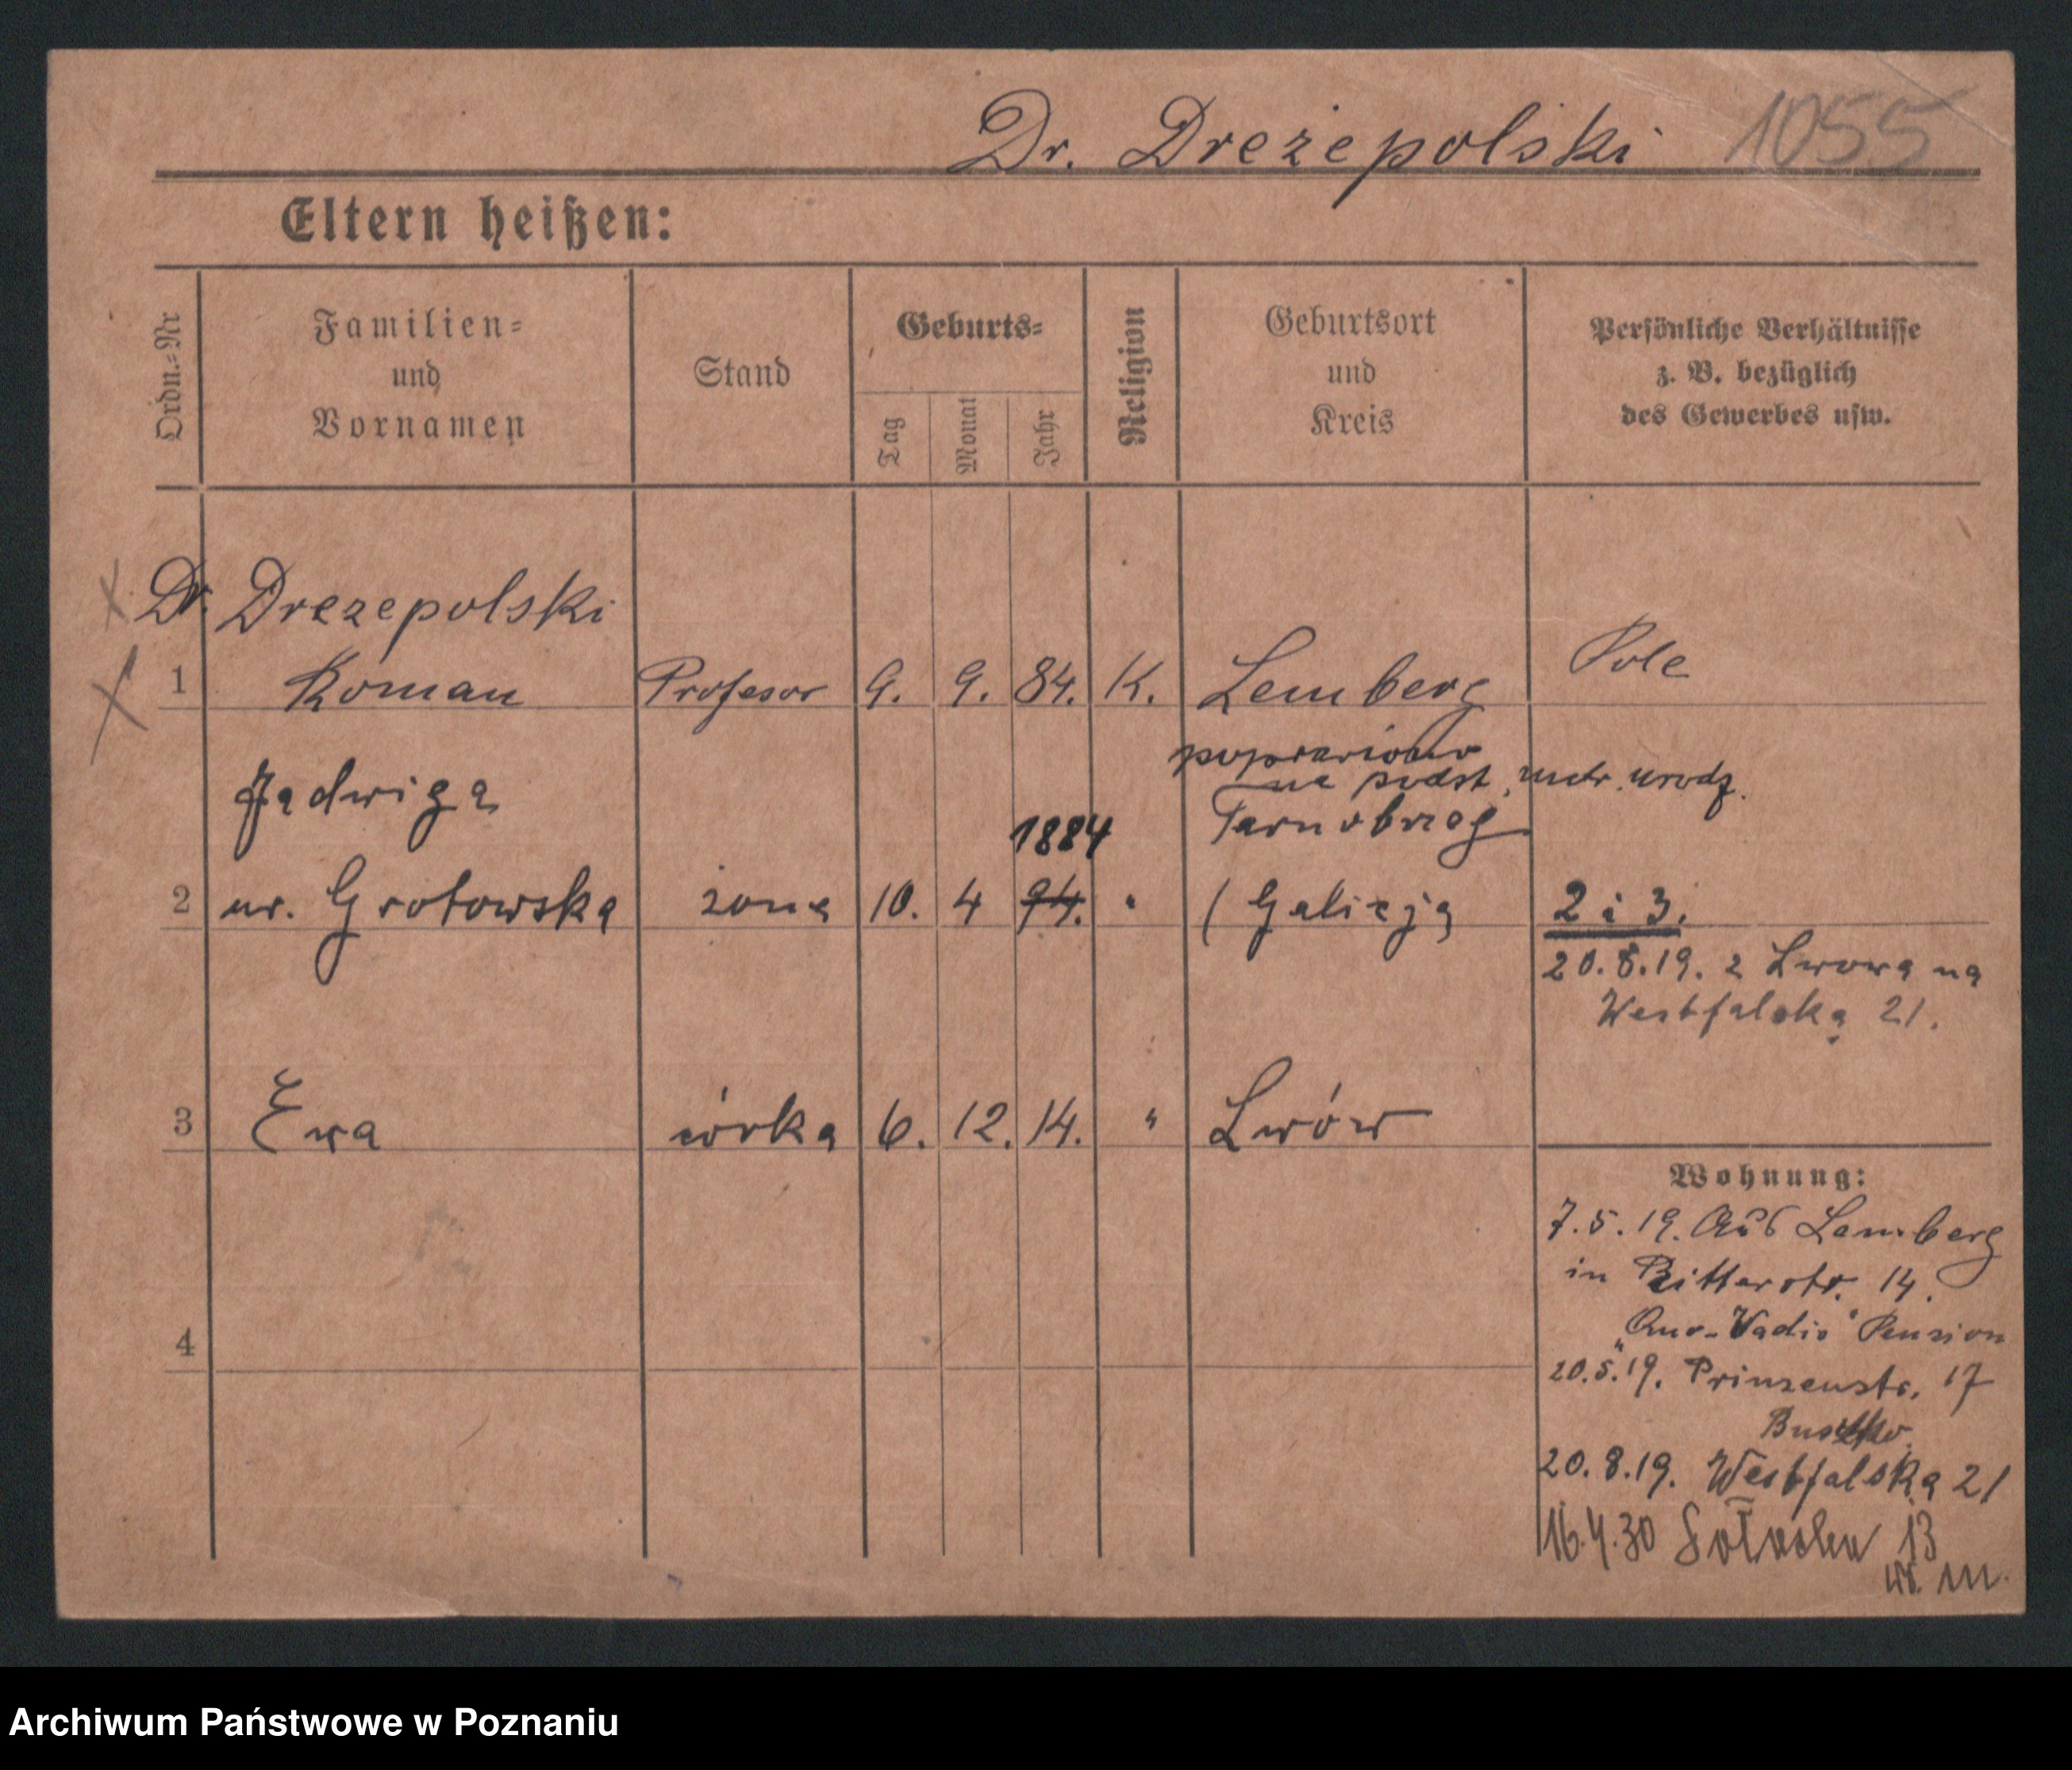 Dr. Drezepolski 1055
Eltern heißen:
Ordn.=Nr
Familien=
und
Vornamen
Stand
Geburts=
Tag
Monat
Jahr
Religion
Geburtsort
und
Kreis
Persönliche Verhältnisse
z. B. bezüglich
des Gewerbes usw.
Dr. Drezepolski
1 Roman Profesor 9. 9. 84. K. Lemberg Pole
poprawiono
na podst. metr. urodz.
Jadwiga 1884 Tarnobrzeg
2 ur. Grotowska żona 10. 4 94. " (Galicja 2 i 3.
20.8.19. z Lwowa na
Westfalska 21.
3 Ewa córka 6. 12. 14. " Lwów
Wohnung:
7.5.19. Aus Lemberg
in Ritterstr. 14.
"Quo-Vadis" Pension
4
20.5.19. Prinzenstr. 17
20.8.19. Westfalska 21
16.4.30 13
Archiwum Państwowe w Poznaniu